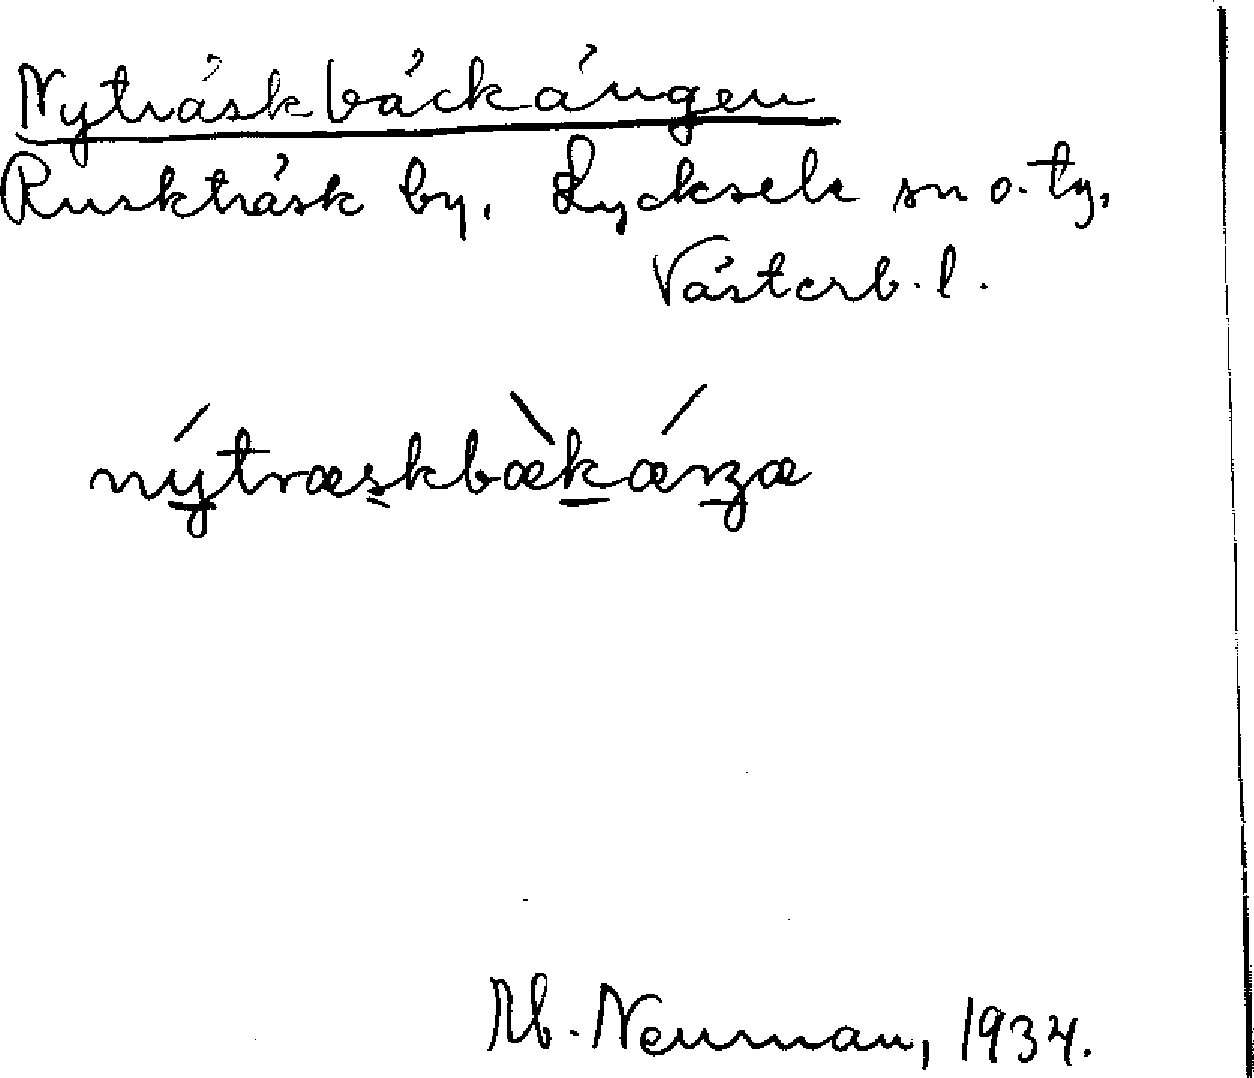 Nyträskbäckängen
Ruskträsk by, Lycksele sn o. ty,
Västerb. l.
nýtræskbæ̀kǽnʒæ
Hb. Neuman, 1934.